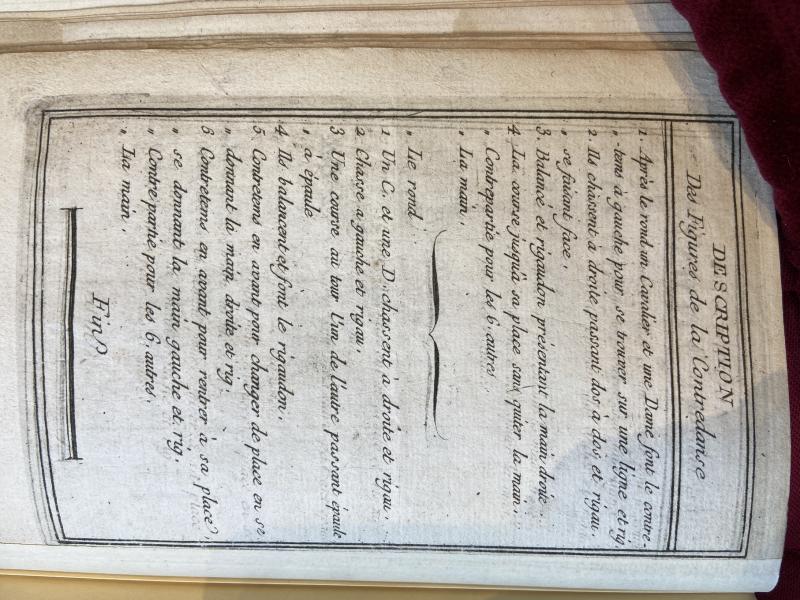 DESCRIPTION
Des Figures de la Contredanse
1. Après le rond un Cavalier et une Dame font le contre-
„ -tems à gauche pour se trouver sur une ligne et rig.
2 Ils chassent à droite passant dos à dos et rigau.
„ se faisant face,
3. Balancé et rigaudon présentant la main droite
4 La course jusqu'à sa place sans quiter la main,
„ Contrepartie pour les 6. autres
„ La main,
„ Le rond
1 Un C. et une D. chassent à droite et rigau,
2 Chasse a gauche et rigau,
3 Une course au tour l'un de l'autre passant épaule
„ à épaule
4 Ils balancent et font le rigaudon,
5 Contretems en avant pour changer de place en se
„ donnant la main droite et rig.
6 Contretems en avant pour rentrer à sa place,
„ se donnant la main gauche et rig.
„ Contre partie pour les 6. autres,
„ La main,
Fin